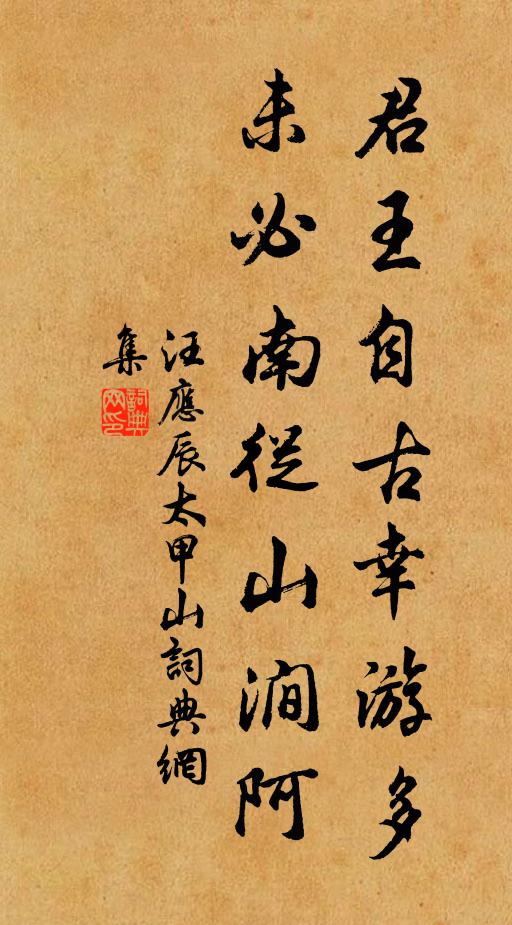 君王自古幸游多
未必南從山澗阿
汪應辰太甲山詞典網
集
詞典網印